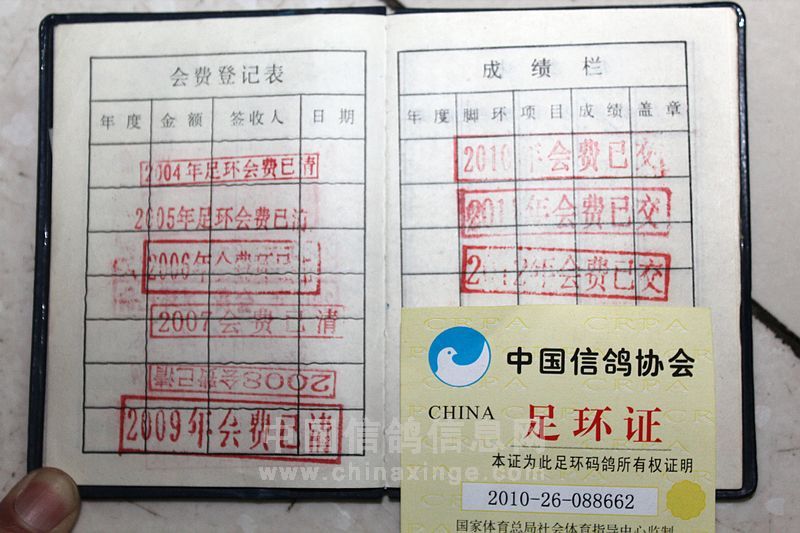 会费登记表
年度 金额 签收人 日期
2004年足环会费已清
2005年足环会费已清
2006年会费已
2007会费已清
2008会费已清
2009年会费已清
成绩栏
年度 脚环 项目 成绩 盖章
2010年会费已交
2011年会费已交
2012年会费已交
CRPA CRPA
中国信鸽协会
CHINA 足环证
本证为此足环码鸽所有权证明
2010-26-088662
国家体育总局社会体育指导中心监制
中国信鸽信息网
www.chinaxinge.com